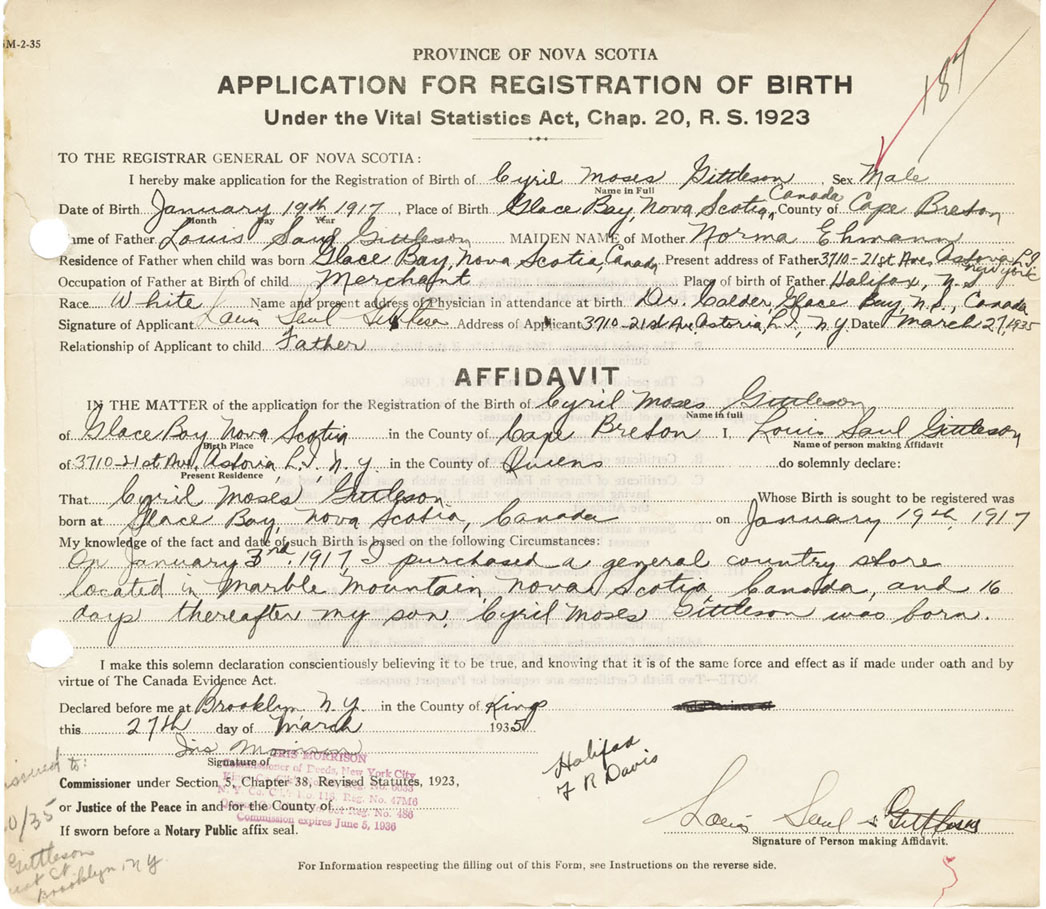 M-2-35
187
PROVINCE OF NOVA SCOTIA
APPLICATION FOR REGISTRATION OF BIRTH
Under the Vital Statistics Act, Chap. 20, R. S. 1923
TO THE REGISTRAR GENERAL OF NOVA SCOTIA:
I hereby make application for the Registration of Birth of Cyril Moses Gittleson Sex Male
Name in Full
Date of Birth January 19th 1917, Place of Birth Glace Bay, Nova Scotia, Canada County of Cape Breton
Month Day Year
Name of Father Louis Saul Gittleson MAIDEN NAME of Mother Norma Ehmann
Residence of Father when child was born Glace Bay, Nova Scotia, Canada Present address of Father 3710-21st Ave Astoria L.I. New York
Occupation of Father at Birth of child Merchant Place of birth of Father Halifax, N.S.
Race White Name and present address of Physician in attendance at birth. Dr. Calder, Glace Bay, N.S., Canada
Signature of Applicant Louis Saul Gittleson Address of Applicant 3710-21st Av. Astoria, L.I., N.Y. Date March 27, 1935
Relationship of Applicant to child Father
AFFIDAVIT
IN THE MATTER of the application for the Registration of the Birth of Cyril Moses Gittleson
Name in full
of Glace Bay Nova Scotia in the County of Cape Breton I, Louis Saul Gittleson
Birth Place Name of person making Affidavit
of 3710-21st Ave. Astoria L.I. N.Y in the County of Quens do solemnly declare:
Present Residence
That Cyril Moses Gittleson Whose Birth is sought to be registered was
born at Glace Bay, Nova Scotia, Canada on January 19th, 1917
My knowledge of the fact and date of such Birth is based on the following Circumstances:
On January 3rd. 1917 I purchased a general country store
located in Marble Mountain, Nova Scotia, Canada, and 16
days thereafter my son, Cyril Moses Gittleson was born.
I make this solemn declaration conscientiously believing it to be true, and knowing that it is of the same force and effect as if made under oath and by
virtue of The Canada Evidence Act.
Declared before me at Brooklyn N.Y. in the County of Kings
this 27th day of March 1935
Iris Morrison
Signature of
IRIS MORRISON
Commissioner of Deeds, New York City
Commissioner under Section 5, Chapter 38, Revised Statutes, 1923,
N. Y. Co. Reg. No. 47M6
or Justice of the Peace in and for the County of
Reg. No. 486
Commission expires June 5, 1936
If sworn before a Notary Public affix seal.
Halifax
F R Davis
Louis Saul Gittleson
Signature of Person making Affidavit.
issued to:
0/35
Gittleson
St.
Brooklyn, N Y
5
For Information respecting the filling out of this Form, see Instructions on the reverse side.